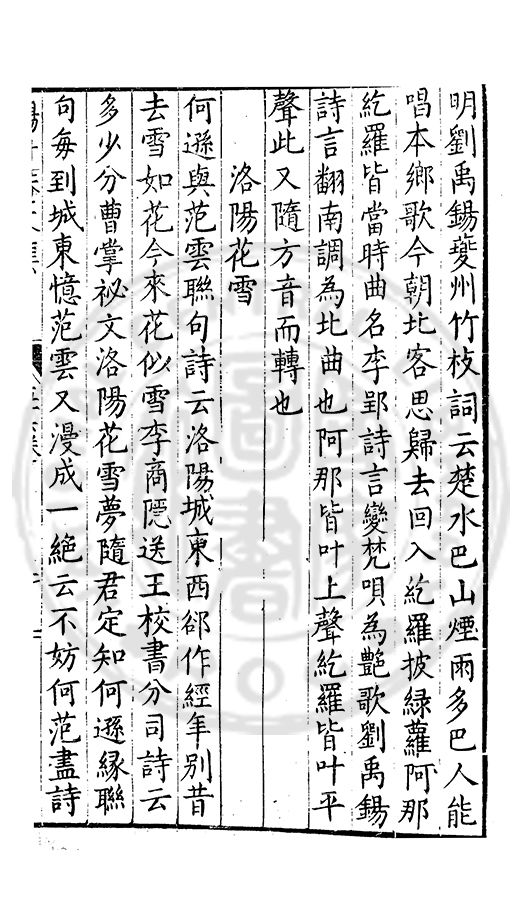 明劉禹錫夔州竹枝詞云楚水巴山煙雨多巴人能
唱本鄉歌今朝北客思歸去回入紇羅披綠蘿阿那
紇羅皆當時曲名李郢詩言變梵唄為艶歌劉禹錫
詩言翻南調為北曲也阿那皆叶上聲紇羅皆叶平
聲此又隨方音而轉也
洛陽花雪
何遜與范雲聯句詩云洛陽城東西郤作經年别昔
去雪如花今來花似雪李商隱送王校書分司詩云
多少分曹掌祕文洛陽花雪夢隨君定知何遜緣聯
句每到城東憶范雲又漫成一絕云不妨何范盡詩